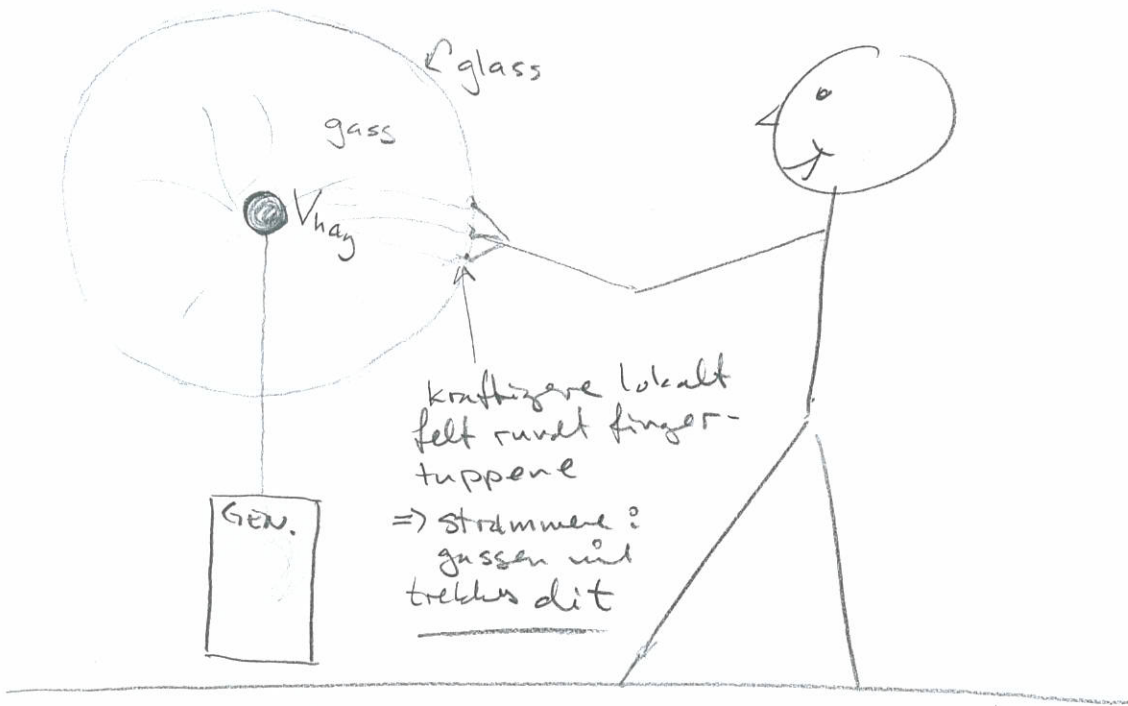 glass
gass
Vhøy
GEN.
kraftigere lokalt
felt rundt finger-
tuppene
=> strømmene i
gassen vil
trekkes dit